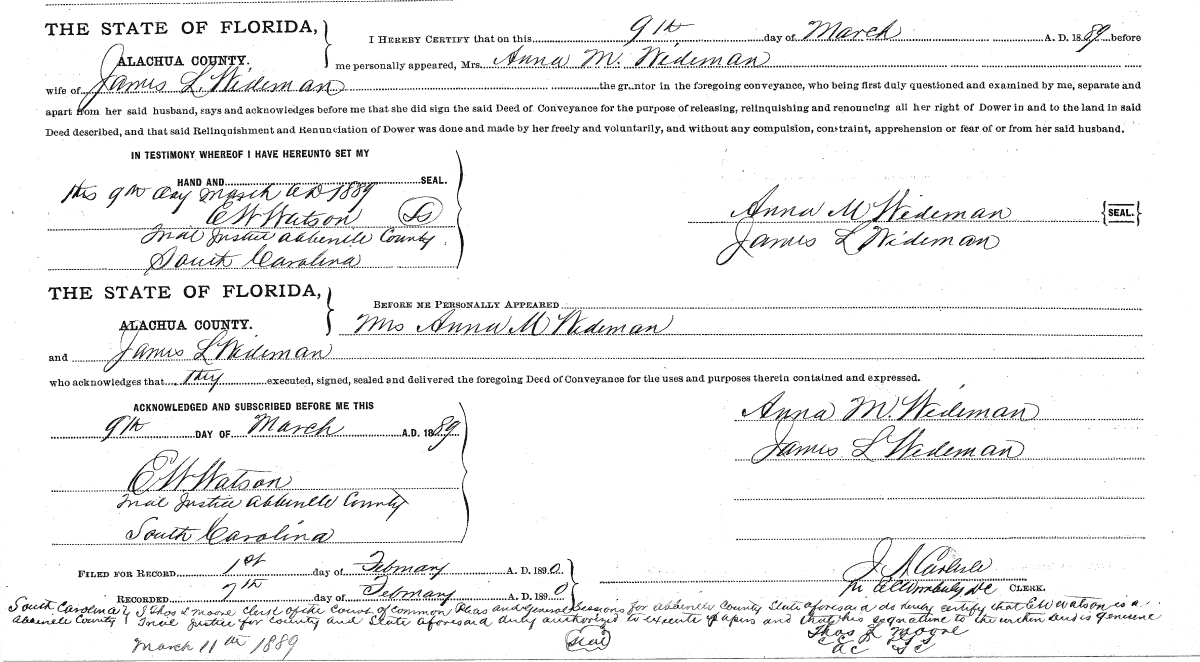 THE STATE OF FLORIDA,
ALACHUA COUNTY.
I HEREBY CERTIFY that on this 9th day of March A. D. 1889 before
me personally appeared, Mrs. Anna M. Wideman
wife of James L. Wideman the gr..ntor in the foregoing conveyance, who being first duly questioned and examined by me, separate and
apart from her said husband, says and acknowledges before me that she did sign the said Deed of Conveyance for the purpose of releasing, relinquishing and renouncing all her right of Dower in and to the land in said
Deed described, and that said Relinquishment and Renunciation of Dower was done and made by her freely and voluntarily, and without any compulsion, constraint, apprehension or fear of or from her said husband.
IN TESTIMONY WHEREOF I HAVE HEREUNTO SET MY
HAND AND SEAL.
this 9th day March AD 1889
E W Watson LS
Trial Justice Abbeville County
South Carolina
Anna M Wideman {SEAL.}
James L Wideman
THE STATE OF FLORIDA,
ALACHUA COUNTY.
BEFORE ME PERSONALLY APPEARED
Mrs Anna M Wideman
and James L Wideman
who acknowledges that they executed, signed, sealed and delivered the foregoing Deed of Conveyance for the uses and purposes therein contained and expressed.
ACKNOWLEDGED AND SUBSCRIBED BEFORE ME THIS
9th DAY OF March A.D. 1889
E W Watson
Trial Justice Abbeville County
South Carolina
Anna M. Wideman
James L Wideman
FILED FOR RECORD 1st day of February A. D. 1890
RECORDED 7th day of February A. D. 1890
J A Carlisle
CLERK.
South Carolina } I Thos L Moore Clerk of the Court of Common Pleas and General Sessions for Abbeville County State aforesaid do hereby certify that E W Watson is a
Abbeville County } Trial Justice for County and State aforesaid duly authorized to execute papers and that his signature to the within deed is genuine
March 11th 1889
Seal
Thos L Moore